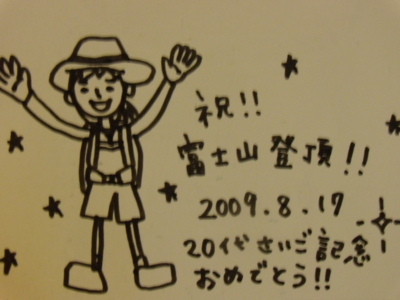 祝!!
富士山登頂!!
2009.8.17
20代さいご記念
おめでとう!!